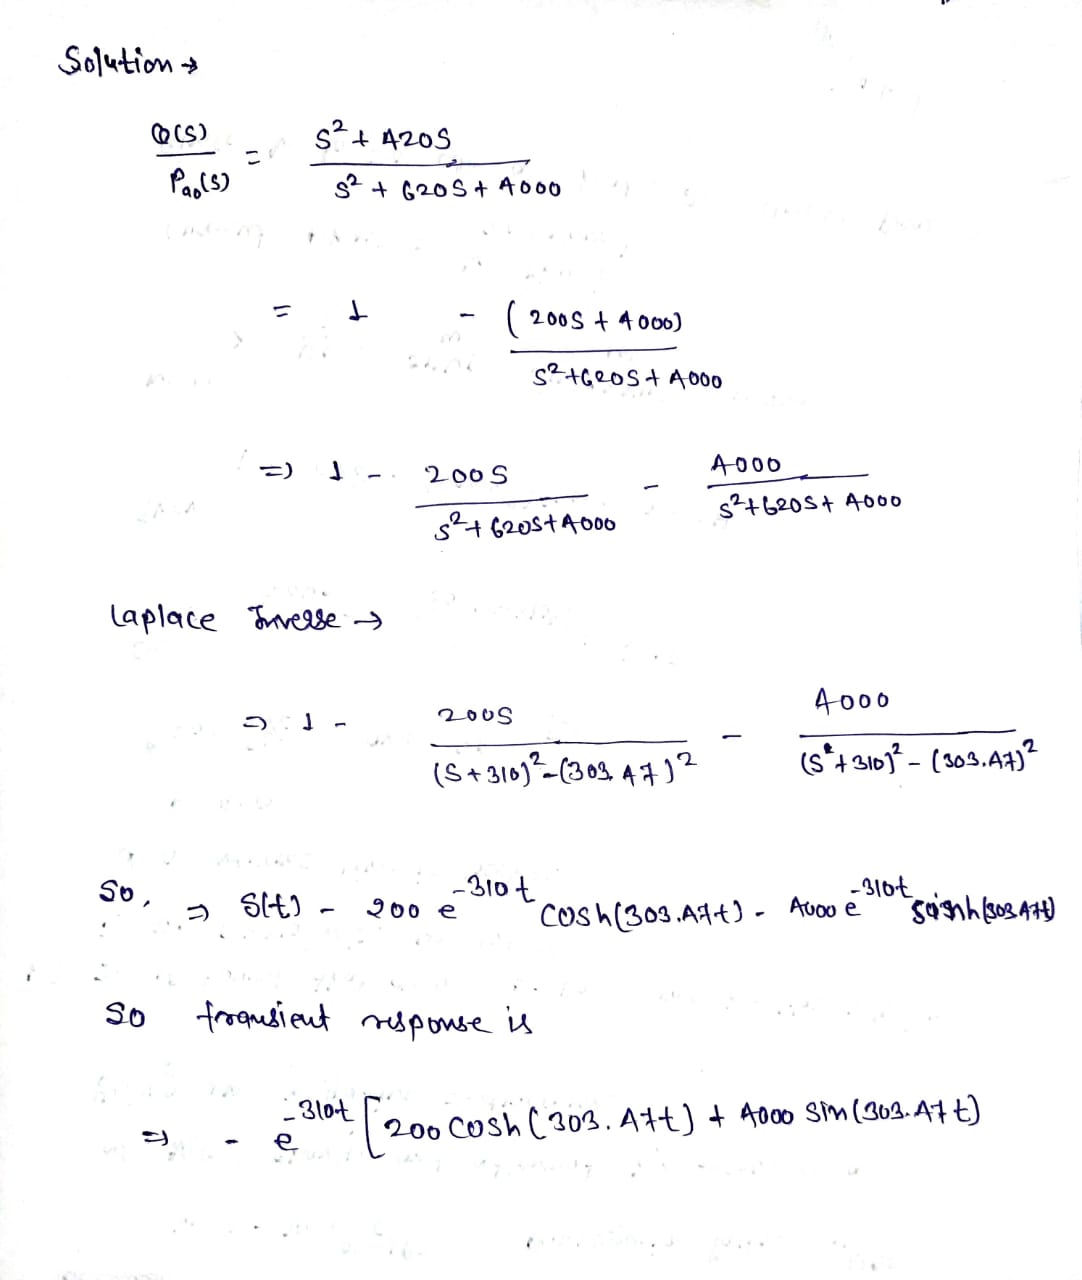 Solution →
Q(S) / Pao(S) = S² + 420S / S² + 620S + 4000
= 1 - (200S + 4000) / S²+620S + 4000
=) 1 - 200S / S²+620S+4000 - 4000 / S²+620S+ 4000
Laplace Inverse →
=) 1 - 200S / (S+310)²-(303.47)² - 4000 / (S²+310)² - (303.47)²
So, ⇒ S(t) - 200 e^-310t cosh(303.47t) - 4000 e^-310t sinh(303.47t)
So transient response is
=) - e^-310t [200 cosh (303.47t) + 4000 Sin (303.47t)